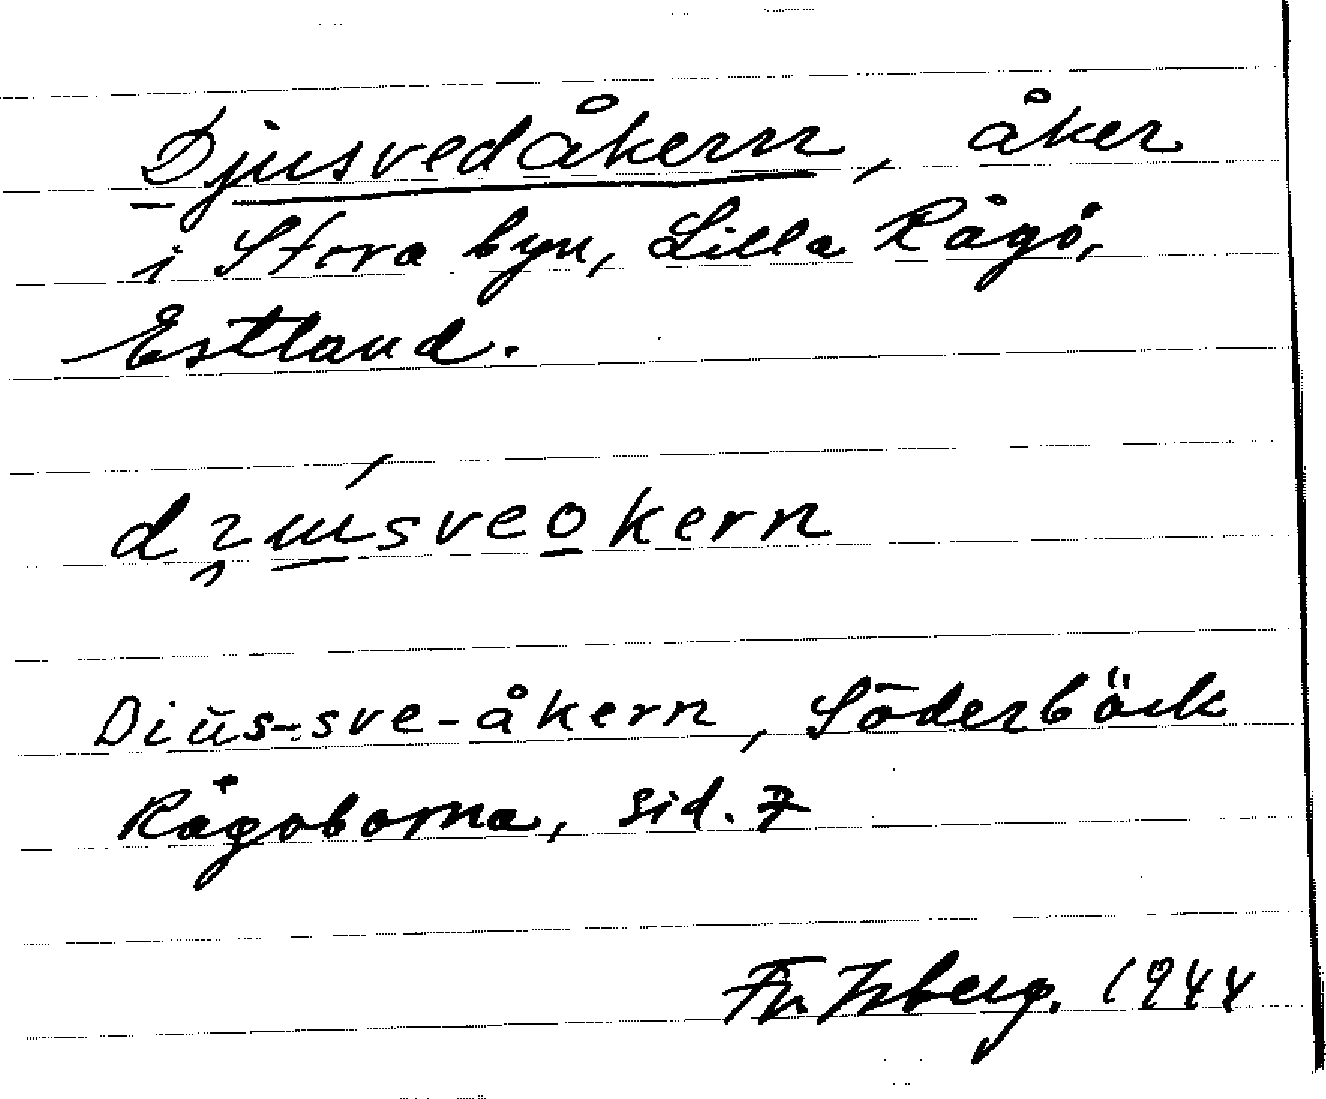 Djusvedåkern, åker
i Stora byn, Lilla Rågö,
Estland.
Diŭs-sve-åkern, Söderbäck
Rågöborna, sid. 7
Fr. Isberg. 1944